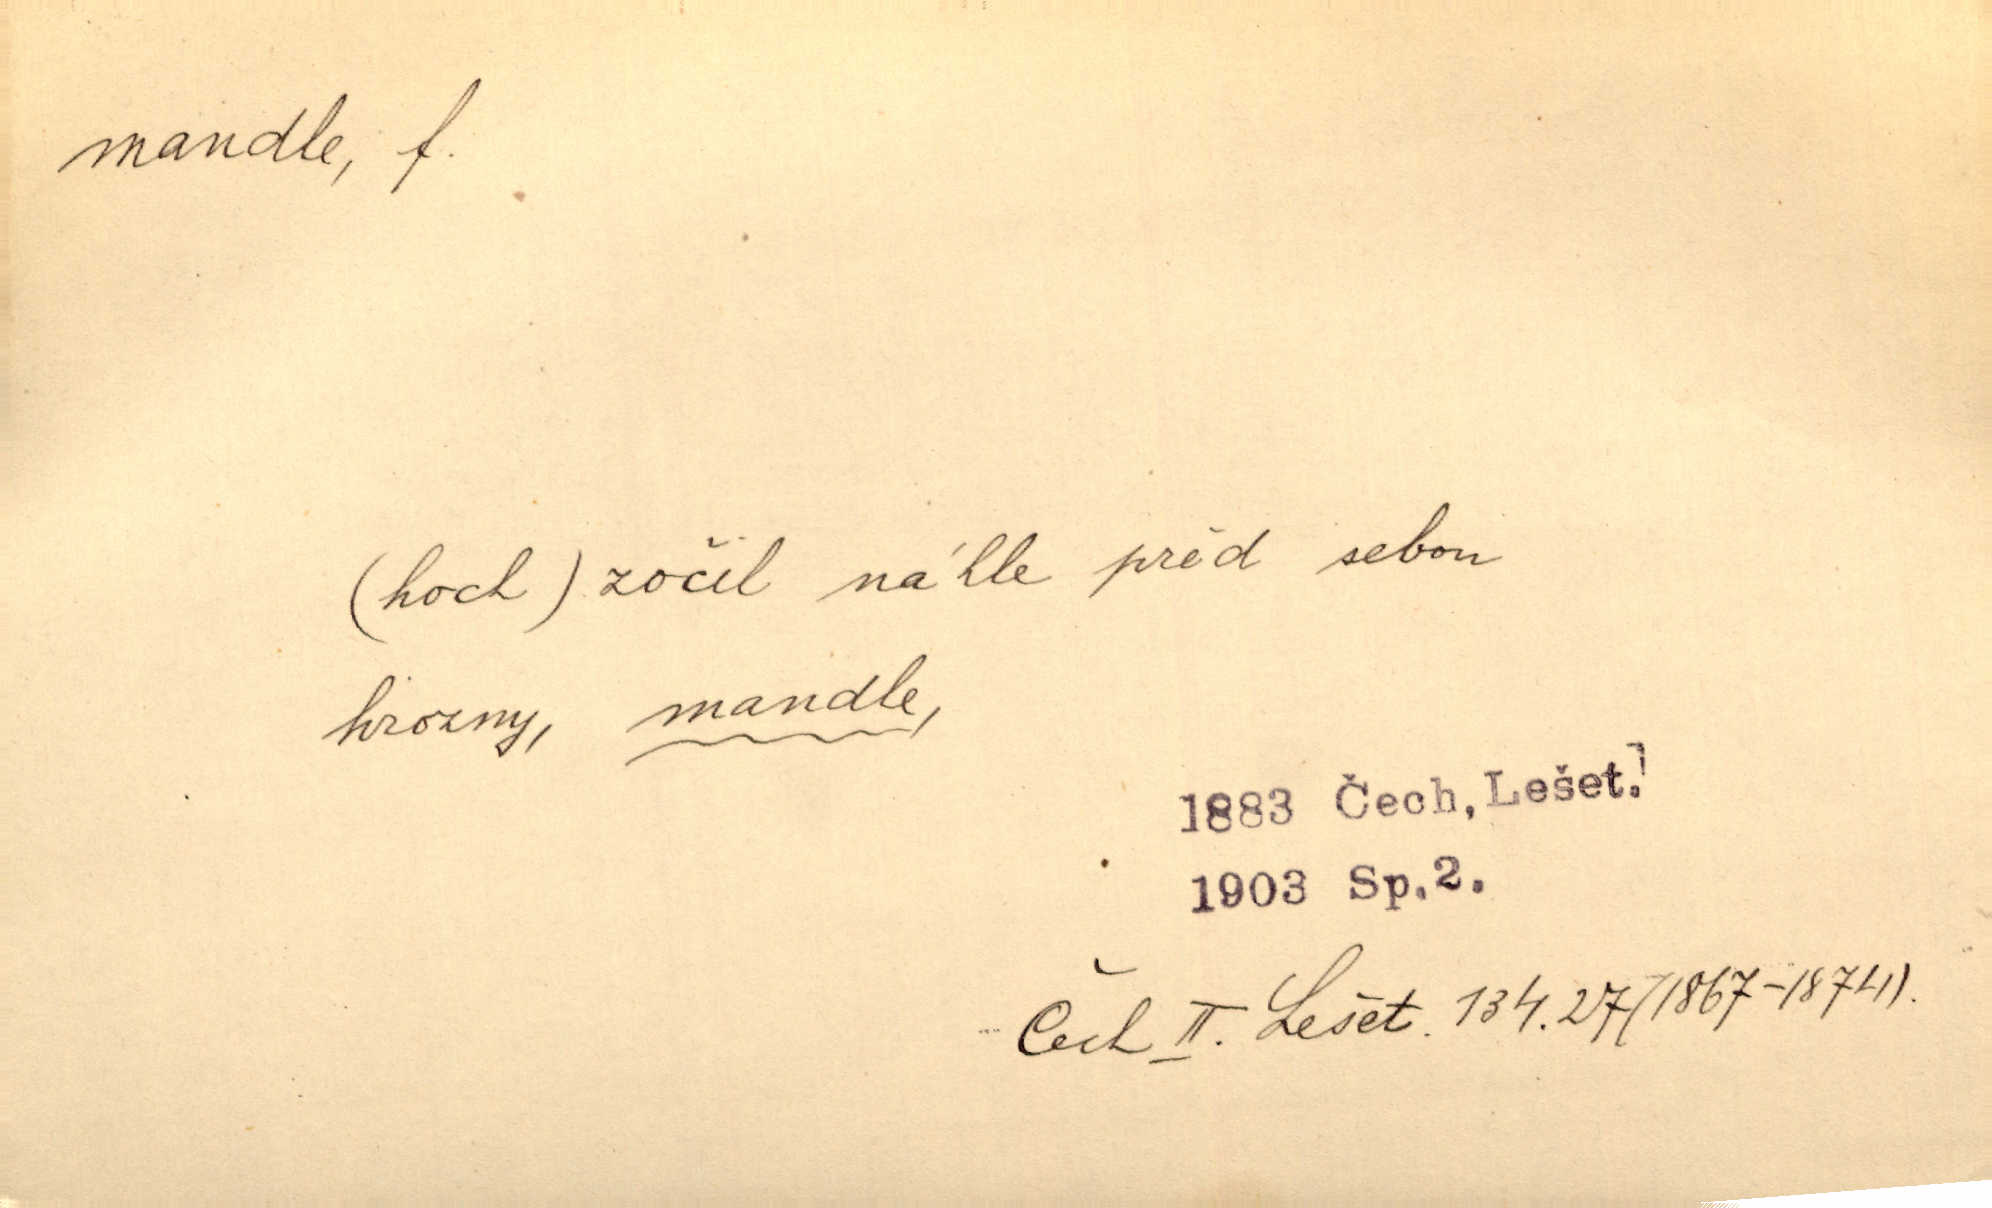 mandle, f.
(hoch) zočil náhle před sebou
hrozny, mandle,
1883 Čech, Lešet.
1903 Sp.2.
Čech II. Lešet. 134.27 (1867-1874).